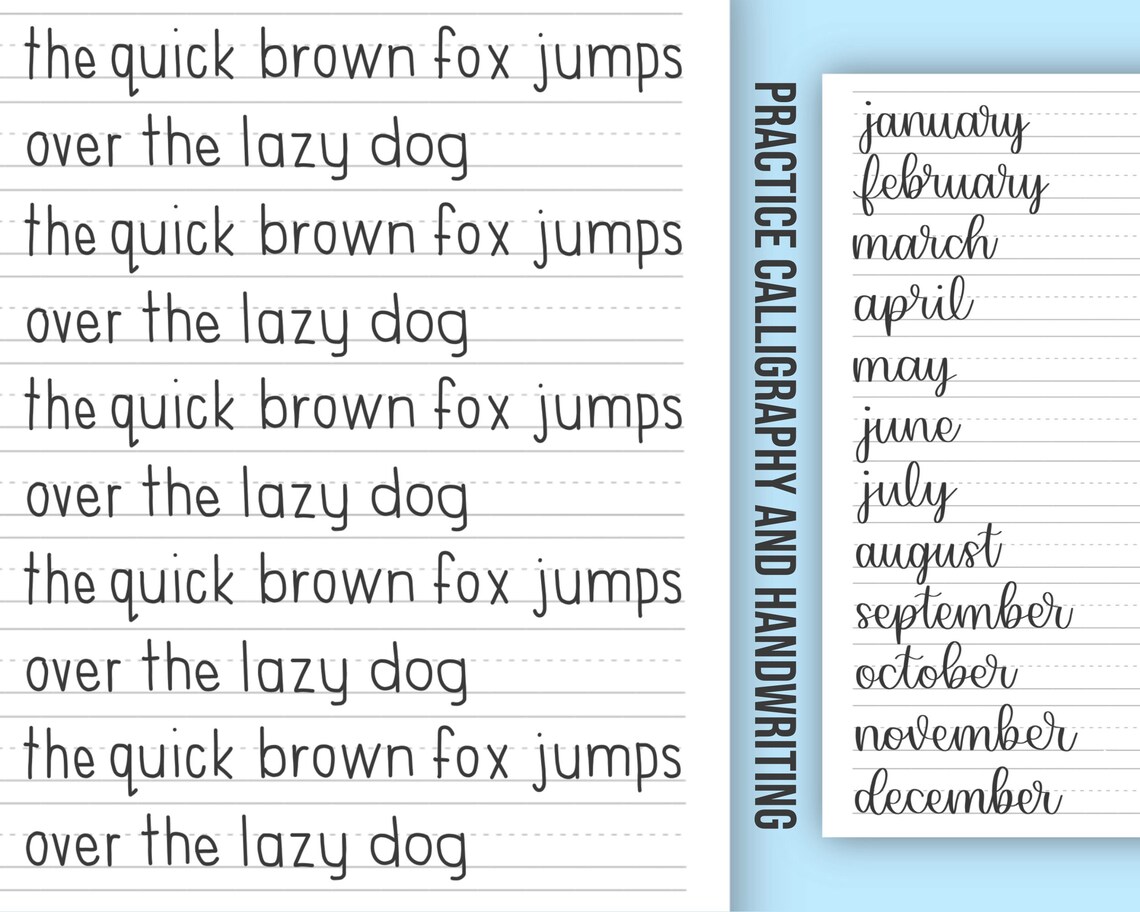 the quick brown fox jumps
over the lazy dog
the quick brown fox jumps
over the lazy dog
the quick brown fox jumps
over the lazy dog
the quick brown fox jumps
over the lazy dog
the quick brown fox jumps
over the lazy dog
PRACTICE CALLIGRAPHY AND HANDWRITING
january
february
march
april
may
june
july
august
september
october
november
december